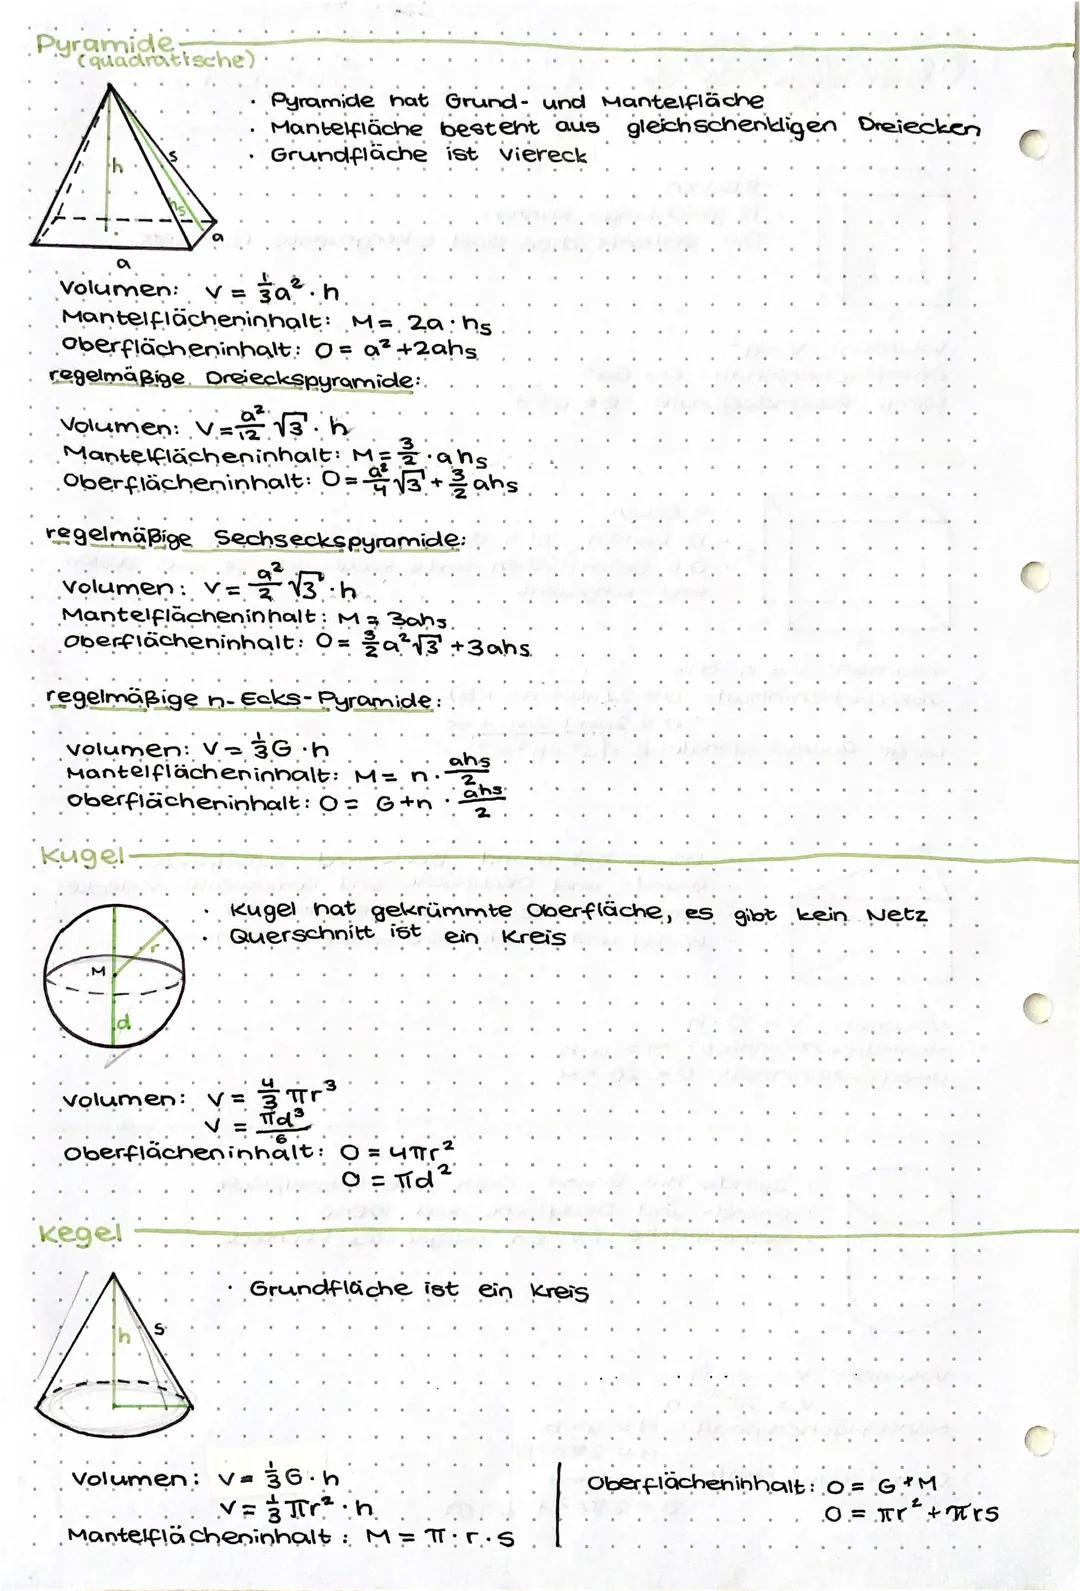 Pyramide
(quadratische)
· Pyramide hat Grund- und Mantelfläche
· Mantelfläche besteht aus gleichschenkligen Dreiecken
· Grundfläche ist Viereck
h
s
hs
a
a
Volumen: V = 1/3 a² · h
Mantelflächeninhalt: M = 2a · hs
Oberflächeninhalt: O = a² + 2ahs
regelmäßige Dreieckspyramide:
Volumen: V = a²/12 √3 · h
Mantelflächeninhalt: M = 3/2 · ahs
Oberflächeninhalt: O = a²/4 √3 + 3/2 ahs
regelmäßige Sechseckspyramide:
Volumen: V = a²/2 √3 · h
Mantelflächeninhalt: M = 3ahs
Oberflächeninhalt: O = 3/2 a² √3 + 3ahs
regelmäßige n-Ecks-Pyramide:
Volumen: V = 1/3 G · h
Mantelflächeninhalt: M = n · ahs/2
Oberflächeninhalt: O = G + n · ahs/2
Kugel
· Kugel hat gekrümmte Oberfläche, es gibt kein Netz
· Querschnitt ist ein Kreis
r
M
d
Volumen: V = 4/3 πr³
V = πd³/6
Oberflächeninhalt: O = 4πr²
O = πd²
Kegel
· Grundfläche ist ein Kreis
h
s
Volumen: V = 1/3 G · h
V = 1/3 πr² · h
Mantelflächeninhalt: M = π · r · s
Oberflächeninhalt: O = G + M
O = πr² + πrs